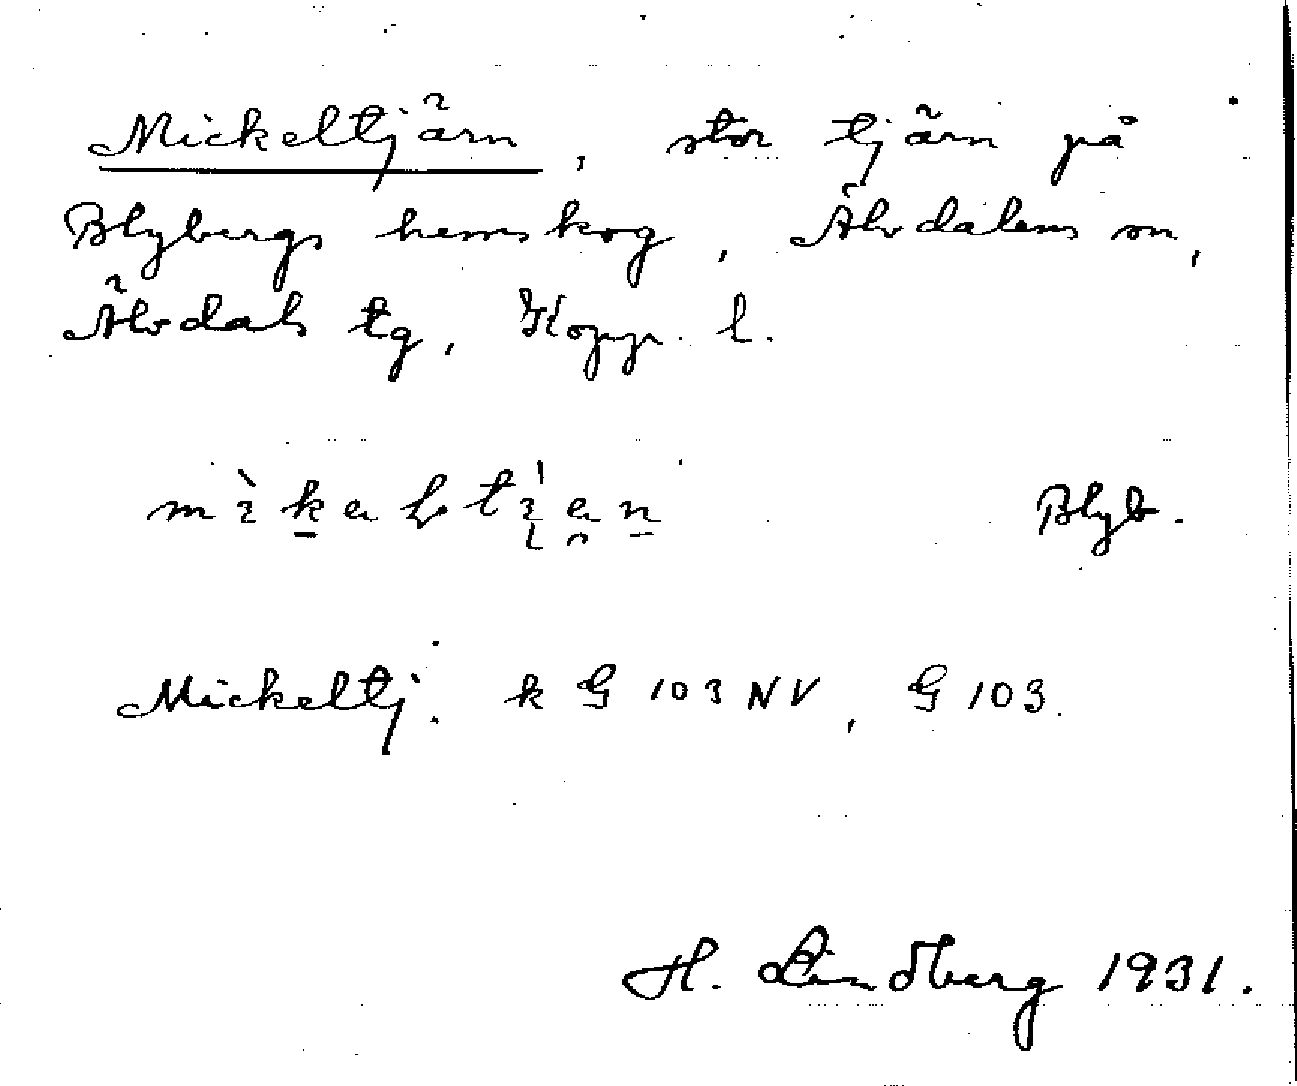 Mickeltjärn, stor tjärn på
Blybergs hemskog, Älvdalens sn,
Älvdals tg, Kopp. l.
Blyb.
Mickeltj. k G 103 NV, G 103.
H. Lindberg 1931.